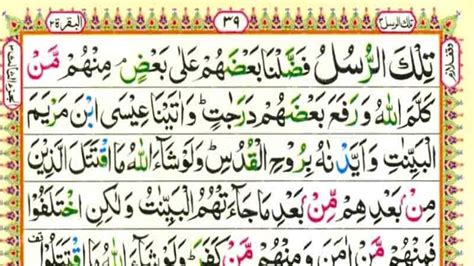 البقرة ٢ ٣٩ تلك الرسل ٣
تِلْكَ الرُّسُلُ فَضَّلْنَا بَعْضَهُمْ عَلٰى بَعْضٍ ۘ مِنْهُمْ مَّنْ
كَلَّمَ اللّٰهُ وَرَفَعَ بَعْضَهُمْ دَرَجٰتٍ ؕ وَاٰتَيْنَا عِيْسَى ابْنَ مَرْيَمَ
الْبَيِّنٰتِ وَاَيَّدْنٰهُ بِرُوْحِ الْقُدُسِ ؕ وَلَوْ شَآءَ اللّٰهُ مَا اقْتَتَلَ الَّذِيْنَ
مِنْۢ بَعْدِهِمْ مِّنْۢ بَعْدِ مَا جَآءَتْهُمُ الْبَيِّنٰتُ وَلٰكِنِ اخْتَلَفُوْا
فَمِنْهُمْ مَّنْ اٰمَنَ وَمِنْهُمْ مَّنْ كَفَرَ ؕ وَلَوْ شَآءَ اللّٰهُ مَا اقْتَتَلُوْا